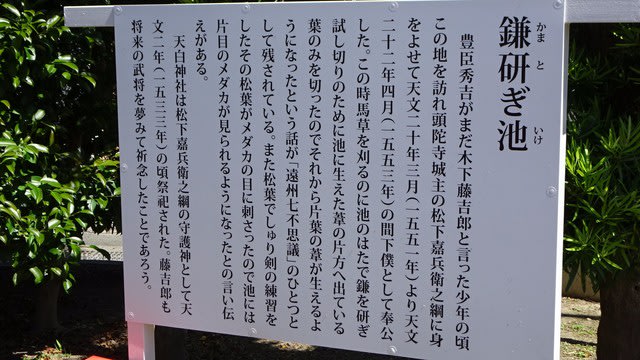 鎌研ぎ池
かま と いけ
豊臣秀吉がまだ木下藤吉郎と言った少年の頃
この地を訪れ頭陀寺城主の松下嘉兵衛之綱に身
をよせて天文二十年三月(一五五一年)より天文
二十二年四月(一五五三年)の間下僕として奉公
した。この時馬草を刈るのに池のはたで鎌を研ぎ
試し切りのために池に生えた葦の片方へ出ている
葉のみを切ったのでそれから片葉の葦が生えるよ
うになったという話が「遠州七不思議」のひとつと
して残されている。また松葉でしゅり剣の練習を
したその松葉がメダカの目に刺さったので池には
片目のメダカが見られるようになったとの言い伝
えがある。
天白神社は松下嘉兵衛之綱の守護神として天
文二年(一五三三年)の頃祭祀された。藤吉郎も
将来の武将を夢みて祈念したことであろう。